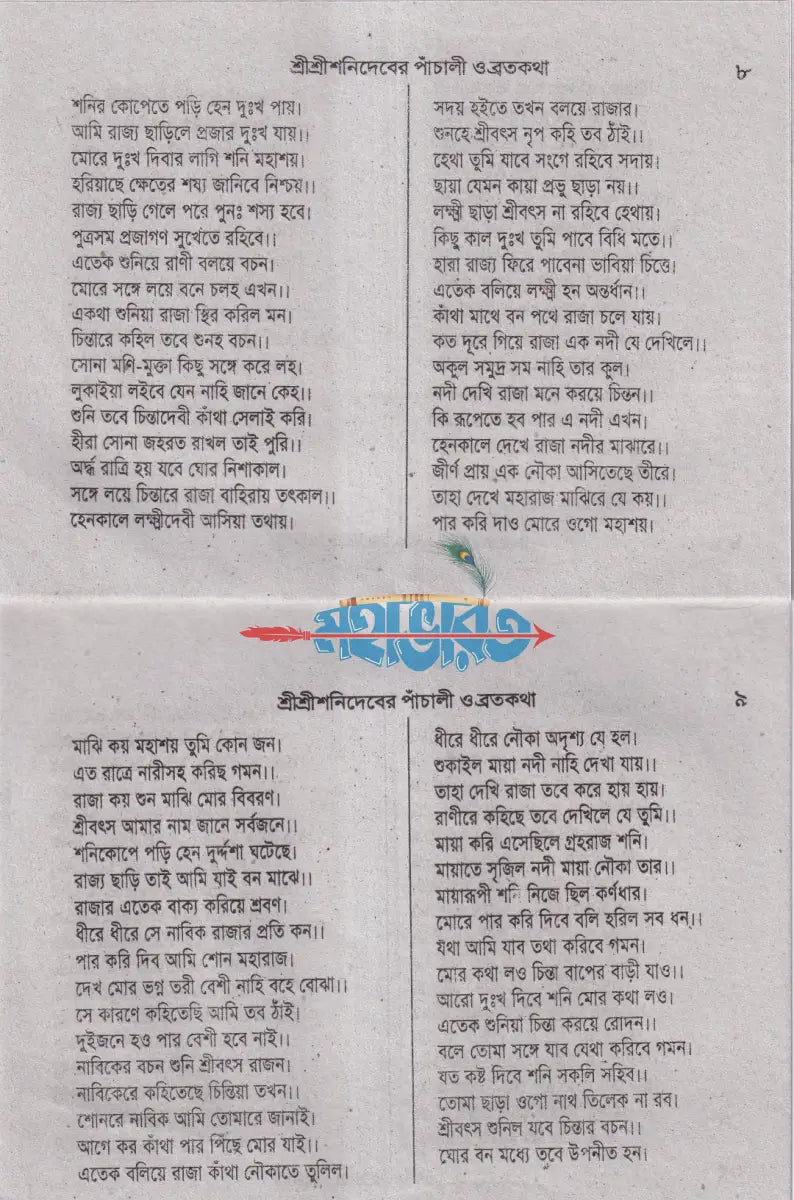 শ্রীশ্রীশনিদেবের পাঁচালী ও ব্রতকথা
৮
শনির কোপেতে পড়ি হেন দুঃখ পায়।
আমি রাজ্য ছাড়িলে প্রজার দুঃখ যায়।।
মোরে দুঃখ দিবার লাগি শনি মহাশয়।
হরিয়াছে ক্ষেতের শষ্য জানিবে নিশ্চয়।।
রাজ্য ছাড়ি গেলে পরে পুনঃ শস্য হবে।
পুত্রসম প্রজাগণ সুখেতে রহিবে।।
এতেক শুনিয়ে রাণী বলয়ে বচন।
মোরে সঙ্গে লয়ে বনে চলহ এখন।।
একথা শুনিয়া রাজা স্থির করিল মন।
চিন্তারে কহিল তবে শুনহ বচন।।
সোনা মণি-মুক্তা কিছু সঙ্গে করে লহ।
লুকাইয়া লইবে যেন নাহি জানে কেহ।।
শুনি তবে চিন্তাদেবী কাঁথা সেলাই করি।
হীরা সোনা জহরত রাখল তাই পুরি।।
অর্দ্ধ রাত্রি হয় যবে ঘোর নিশাকাল।
সঙ্গে লয়ে চিন্তারে রাজা বাহিরায় তৎকাল।।
হেনকালে লক্ষ্মীদেবী আসিয়া তথায়।
সদয় হইতে তখন বলয়ে রাজার।
শুনহে শ্রীবৎস নৃপ কহি তব ঠাঁই।।
হেথা তুমি যাবে সংগে রহিবে সদায়।
ছায়া যেমন কায়া প্রভু ছাড়া নয়।।
লক্ষ্মী ছাড়া শ্রীবৎস না রহিবে হেথায়।
কিছু কাল দুঃখ তুমি পাবে বিধি মতে।।
হারা রাজ্য ফিরে পাবেনা ভাবিয়া চিত্তে।
এতেক বলিয়ে লক্ষ্মী হন অন্তর্ধান।।
কাঁথা মাথে বন পথে রাজা চলে যায়।
কত দূরে গিয়ে রাজা এক নদী যে দেখিলে।।
অকুল সমুদ্র সম নাহি তার কুল।
নদী দেখি রাজা মনে করয়ে চিন্তন।।
কি রূপেতে হব পার এ নদী এখন।
হেনকালে দেখে রাজা নদীর মাঝারে।।
জীর্ণ প্রায় এক নৌকা আসিতেছে তীরে।
তাহা দেখে মহারাজ মাঝিরে যে কয়।।
পার করি দাও মোরে ওগো মহাশয়।
মহাভারত
শ্রীশ্রীশনিদেবের পাঁচালী ও ব্রতকথা
৯
মাঝি কয় মহাশয় তুমি কোন জন।
এত রাত্রে নারীসহ করিছ গমন।।
রাজা কয় শুন মাঝি মোর বিবরণ।
শ্রীবৎস আমার নাম জানে সর্বজনে।।
শনিকোপে পড়ি হেন দুর্দ্দশা ঘটেছে।
রাজ্য ছাড়ি তাই আমি যাই বন মাঝে।।
রাজার এতেক বাক্য করিয়ে শ্রবণ।
ধীরে ধীরে সে নাবিক রাজার প্রতি কন।।
পার করি দিব আমি শোন মহারাজ।
দেখ মোর ভগ্ন তরী বেশী নাহি বহে বোঝা।।
সে কারণে কহিতেছি আমি তব ঠাঁই।
দুইজনে হও পার বেশী হবে নাই।।
নাবিকের বচন শুনি শ্রীবৎস রাজন।
নাবিকেরে কহিতেছে চিন্তিয়া তখন।।
শোনরে নাবিক আমি তোমারে জানাই।
আগে কর কাঁথা পার পিছে মোর যাই।।
এতেক বলিয়ে রাজা কাঁথা নৌকাতে তুলিল।
ধীরে ধীরে নৌকা অদৃশ্য যে হল।
শুকাইল মায়া নদী নাহি দেখা যায়।।
তাহা দেখি রাজা তবে করে হায় হায়।
রাণীরে কহিছে তবে দেখিলে যে তুমি।।
মায়া করি এসেছিলে গ্রহরাজ শনি।
মায়াতে সৃজিল নদী মায়া নৌকা তার।।
মায়ারূপী শনি নিজে ছিল কর্ণধার।
মোরে পার করি দিবে বলি হরিল সব ধন।।
যথা আমি যাব তথা করিবে গমন।
মোর কথা লও চিন্তা বাপের বাড়ী যাও।।
আরো দুঃখ দিবে শনি মোর কথা লও।
এতেক শুনিয়া চিন্তা করয়ে রোদন।।
বলে তোমা সঙ্গে যাব যেথা করিবে গমন।
যত কষ্ট দিবে শনি সকলি সহিব।।
তোমা ছাড়া ওগো নাথ তিলেক না রব।
শ্রীবৎস শুনিল যবে চিন্তার বচন।।
ঘোর বন মধ্যে তবে উপনীত হন।